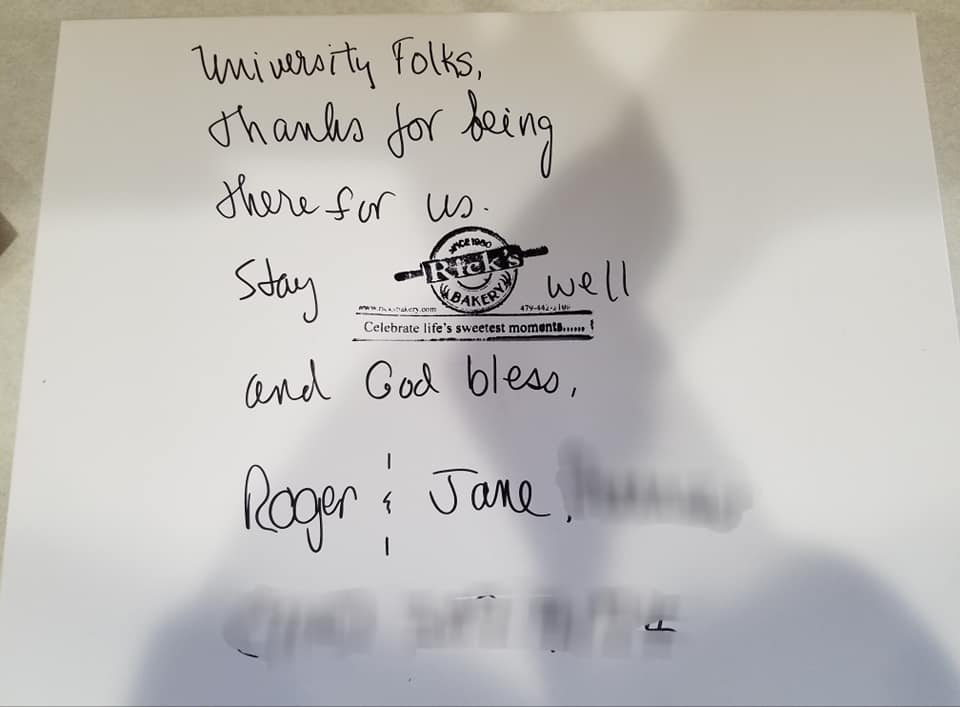 University Folks,
Thanks for being
there for us.
SINCE 1980
Rick's
BAKERY
Stay well
Celebrate life's sweetest moments......
and God bless,
Roger & Jane